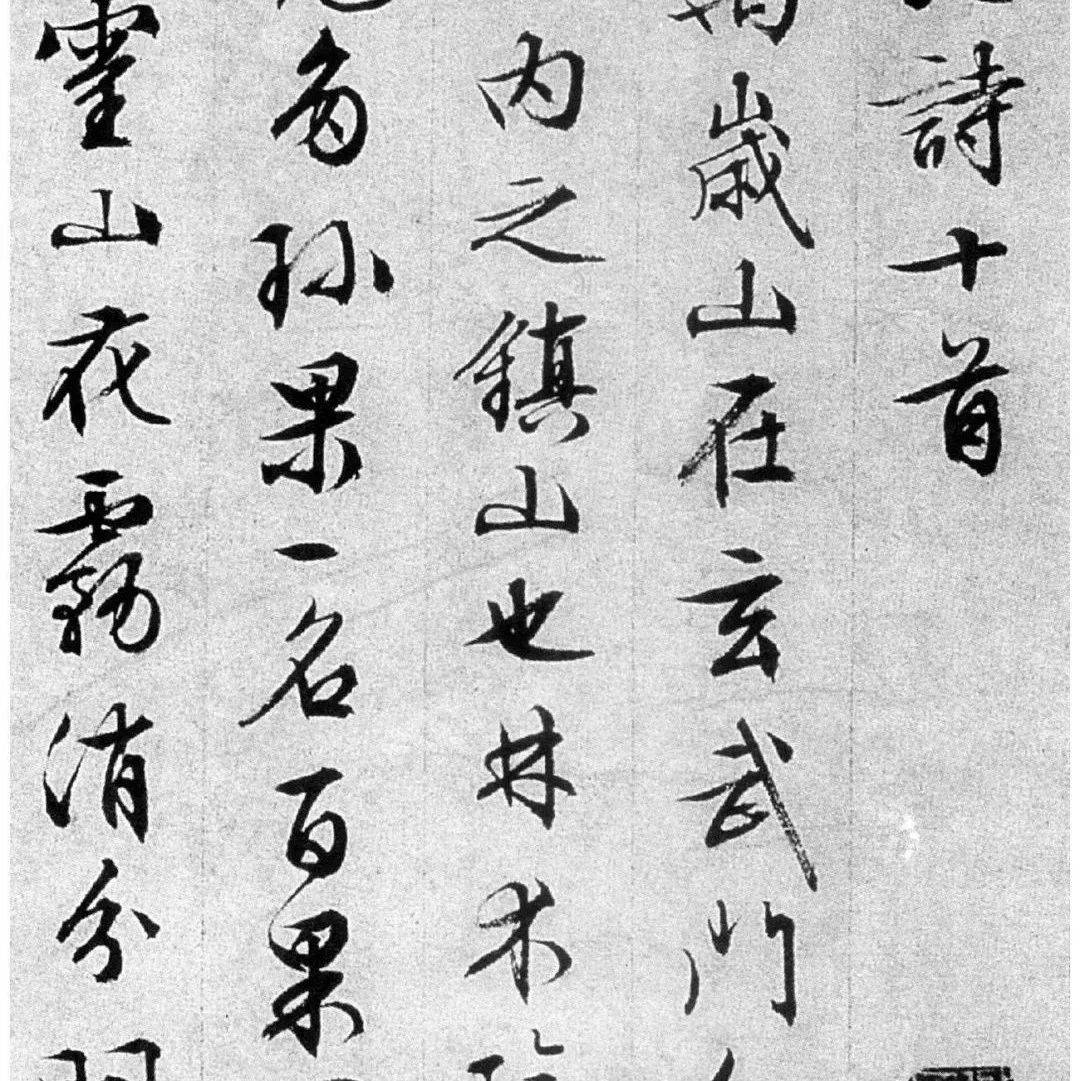 詩十首
歲山在玄武門
內之鎮山也林木
多珍果一名百果
靈山花霧消分